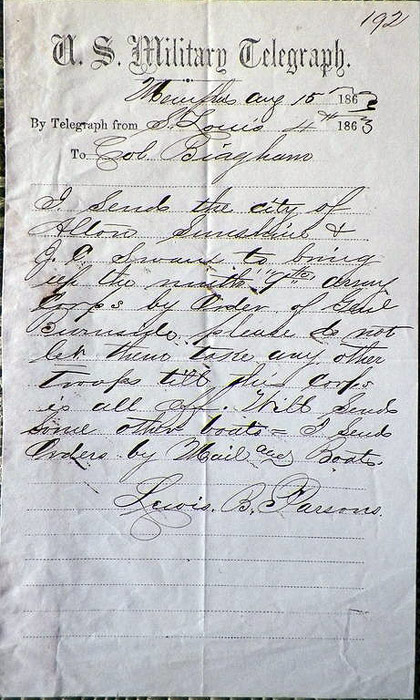 192
U. S. Military Telegraph.
Memphis Aug 15 1863
By Telegraph from St. Louis 4th 1863
To Col Bingham
I send the city of
Alton Sunshine &
J. D. Swain to bring
up the ninth "9th" army
Corps by Order of Genl
Burnside please do not
let them take any other
troops till this Corps
is all off. Will send
some other boats = I send
Orders by Mail and Boats.
Lewis. B. Parsons.